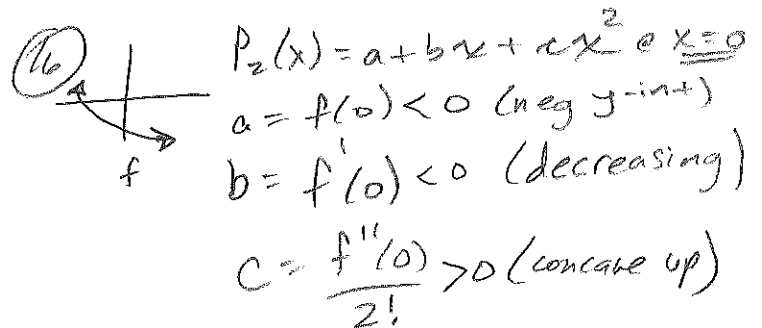 16
P₂(x) = a + bx + cx² @ x=0
a = f(0) < 0 (neg y-int)
f
b = f'(0) < 0 (decreasing)
c = f''(0)/2! > 0 (concave up)